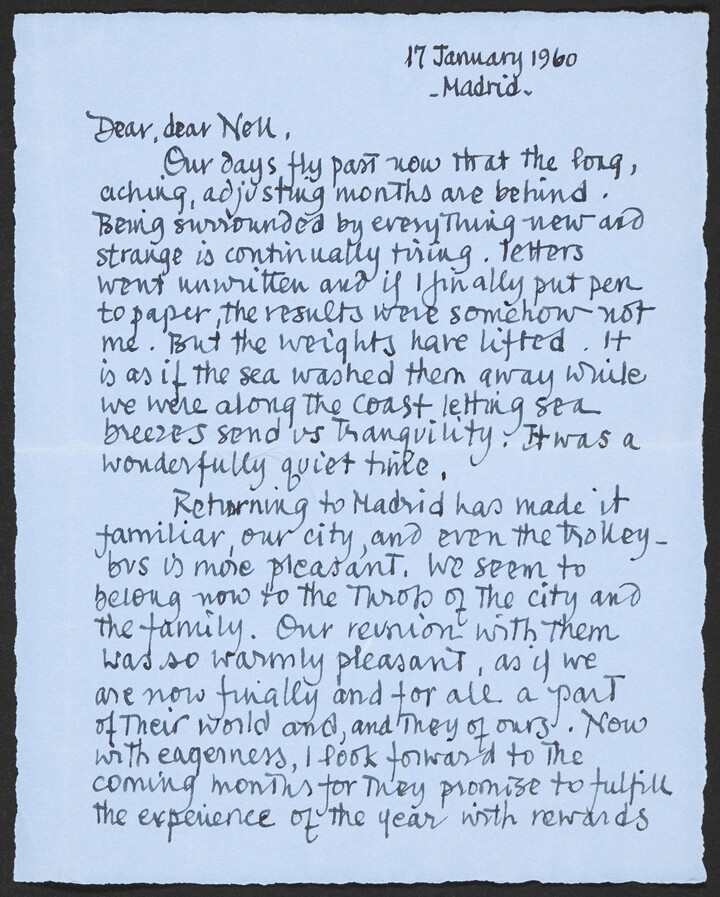 17 January 1960
- Madrid -
Dear, dear Nell,
Our days fly past now that the long,
aching, adjusting months are behind.
Being surrounded by everything new and
strange is continually tiring. Letters
went unwritten and if I finally put pen
to paper, the results were somehow not
me. But the weights have lifted. It
is as if the sea washed them away while
we were along the coast letting sea
breezes send us tranquility. It was a
wonderfully quiet time.
Returning to Madrid has made it
familiar, our city, and even the trolley-
bus is more pleasant. We seem to
belong now to the throb of the city and
the family. Our reunion with them
was so warmly pleasant, as if we
are now finally and for all a part
of their world and, and they of ours. Now
with eagerness, I look forward to the
coming months for they promise to fulfill
the experience of the year with rewards